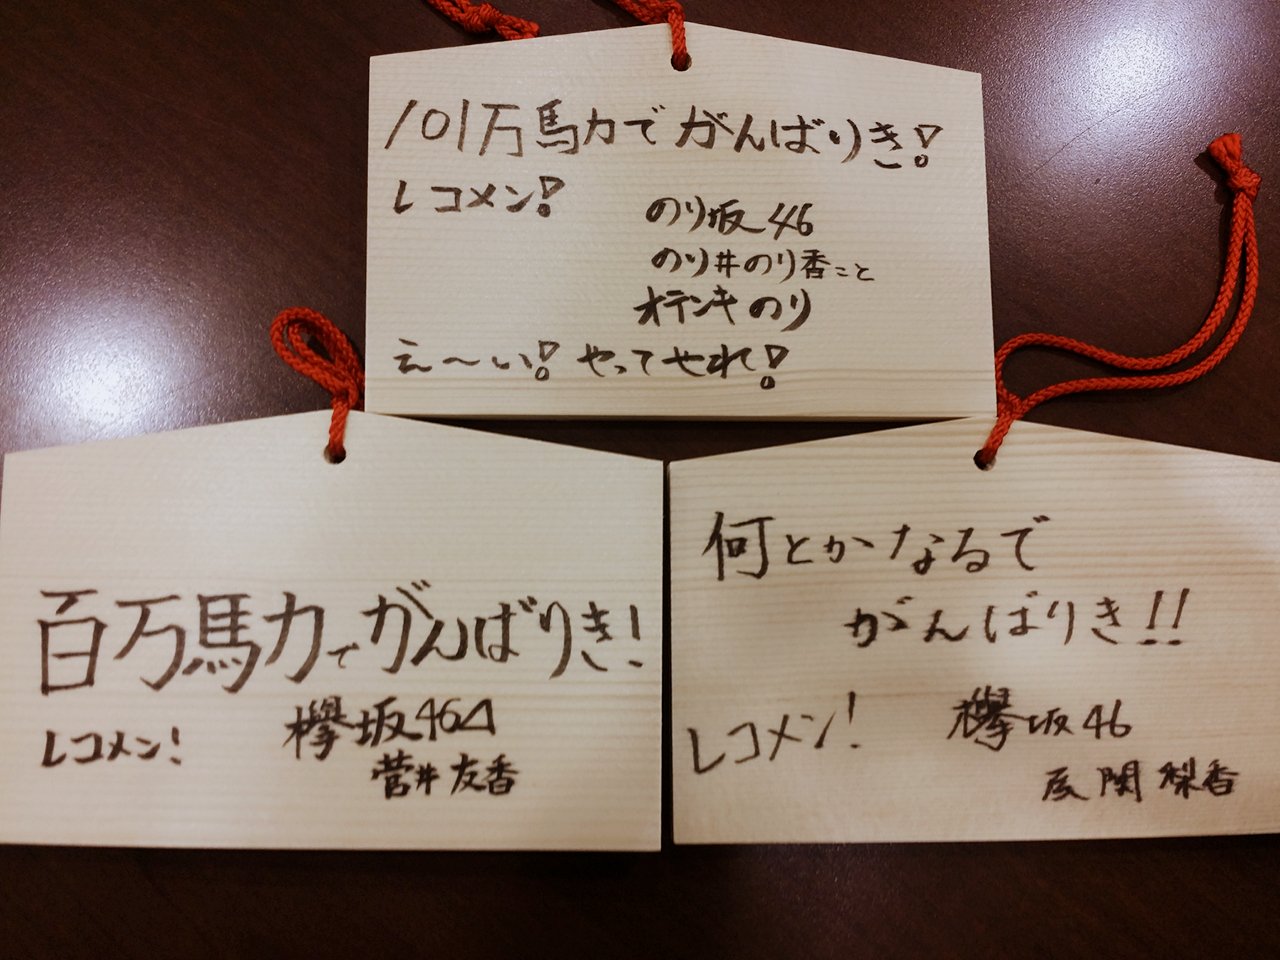 101万馬力でがんばりき!
レコメン!
のり坂46
のり井のり香こと
オテンキのり
え〜い!やってせれ!
百万馬力でがんばりき!
レコメン!
欅坂46
菅井友香
何とかなるで
がんばりき!!
レコメン!
欅坂46
尾関梨香